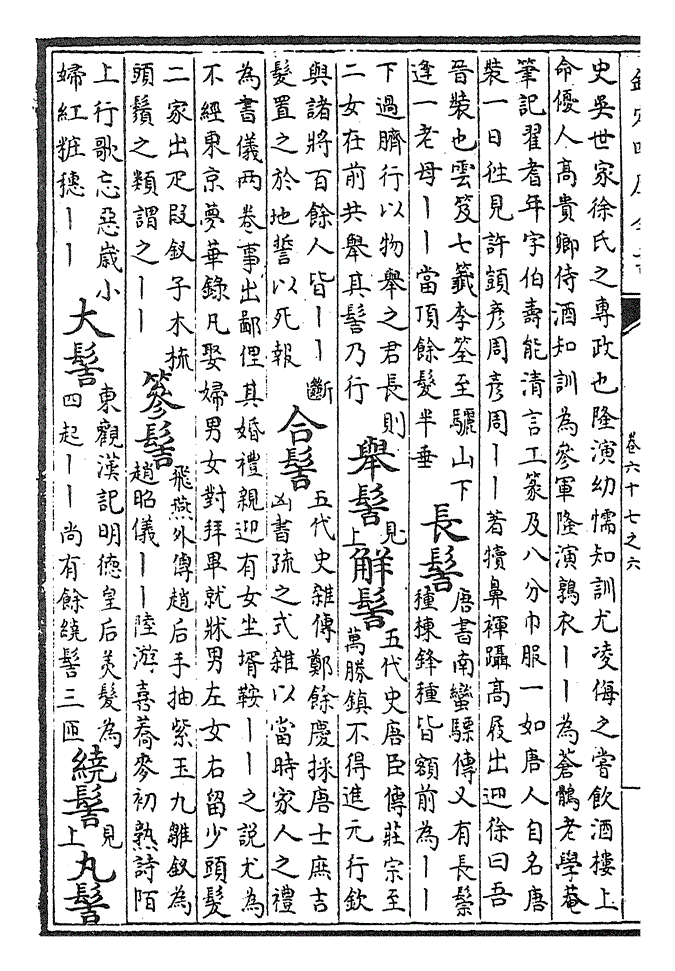 欽定四庫全書
卷六十七之六
史吳世家徐氏之專政也隆演幼懦知訓尤凌侮之嘗飲酒樓上
命優人高貴卿侍酒知訓為參軍隆演鶉衣丨丨為蒼鶻老學菴
筆記翟耆年字伯壽能清言工篆及八分巾服一如唐人自名唐
裝一日往見許顗彥周彥周丨丨著犢鼻褌躡高屐出迎徐曰吾
晉裝也雲笈七籖李筌至驪山下
逢一老母丨丨當頂餘髮半垂
長髻
唐書南蠻驃傳又有長鬃
種棟鋒種皆額前為丨丨
下過臍行以物舉之君長則
二女在前共舉其髻乃行
舉髻
見
上
解髻
五代史唐臣傳莊宗至
萬勝鎮不得進元行欽
與諸將百餘人皆丨丨斷
髮置之於地誓以死報
合髻
五代史雜傳鄭餘慶採唐士庶吉
凶書疏之式雜以當時家人之禮
為書儀兩卷事出鄙俚其婚禮親迎有女坐壻鞍丨丨之說尤為
不經東京夢華錄凡娶婦男女對拜畢就牀男左女右留少頭髮
二家出疋段釵子木梳
頭鬚之類謂之丨丨
篸髻
飛燕外傳趙后手抽紫玉九雛釵為
趙昭儀丨丨陸游喜蕎麥初熟詩陌
上行歌忘惡歲小
婦紅粧穗丨丨
大髻
東觀漢記明德皇后美髮為
四起丨丨尚有餘繞髻三匝
繞髻
見
上
丸髻